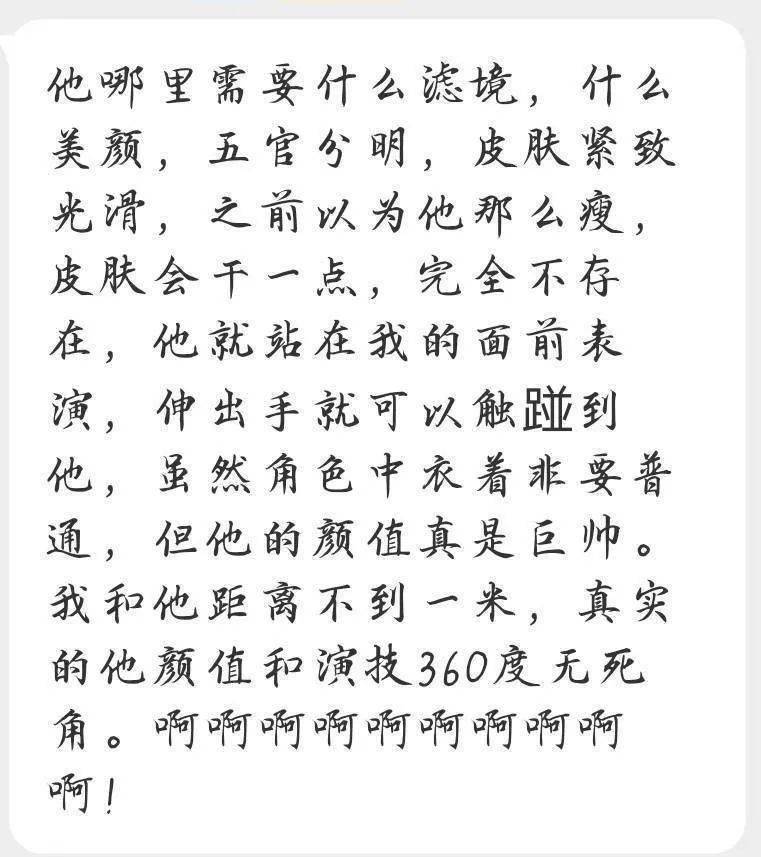 他哪里需要什么滤境，什么
美颜，五官分明，皮肤紧致
光滑，之前以为他那么瘦，
皮肤会干一点，完全不存
在，他就站在我的面前表
演，伸出手就可以触踫到
他，虽然角色中衣着非要普
通，但他的颜值真是巨帅。
我和他距离不到一米，真实
的他颜值和演技360度无死
角。啊啊啊啊啊啊啊啊啊
啊！